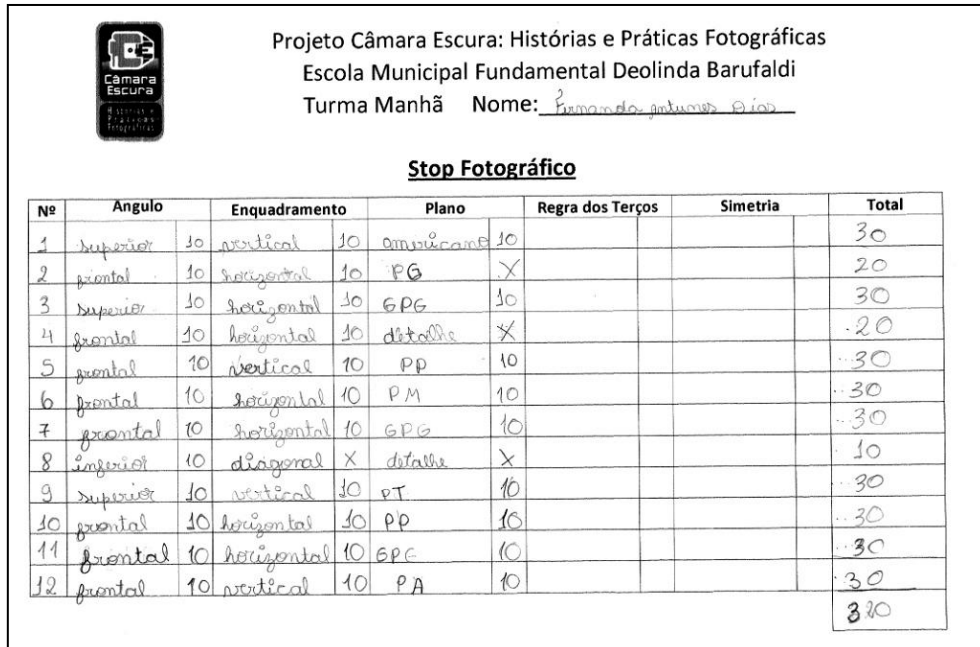 Câmara
Escura
Histórias e
Práticas
Fotográficas
Projeto Câmara Escura: Histórias e Práticas Fotográficas
Escola Municipal Fundamental Deolinda Barufaldi
Turma Manhã Nome: Fernanda Antunes Dias
Stop Fotográfico
Nº Angulo Enquadramento Plano Regra dos Terços Simetria Total
1 superior 10 vertical 10 americano 10 30
2 frontal 10 horizontal 10 PG X 20
3 superior 10 horizontal 10 GPG 10 30
4 frontal 10 horizontal 10 detalhe X 20
5 frontal 10 vertical 10 PP 10 30
6 frontal 10 horizontal 10 PM 10 30
7 frontal 10 horizontal 10 GPG 10 30
8 inferior 10 diagonal X detalhe X 10
9 superior 10 vertical 10 PT 10 30
10 frontal 10 horizontal 10 PP 10 30
11 frontal 10 horizontal 10 GPG 10 30
12 frontal 10 vertical 10 PA 10 30
320